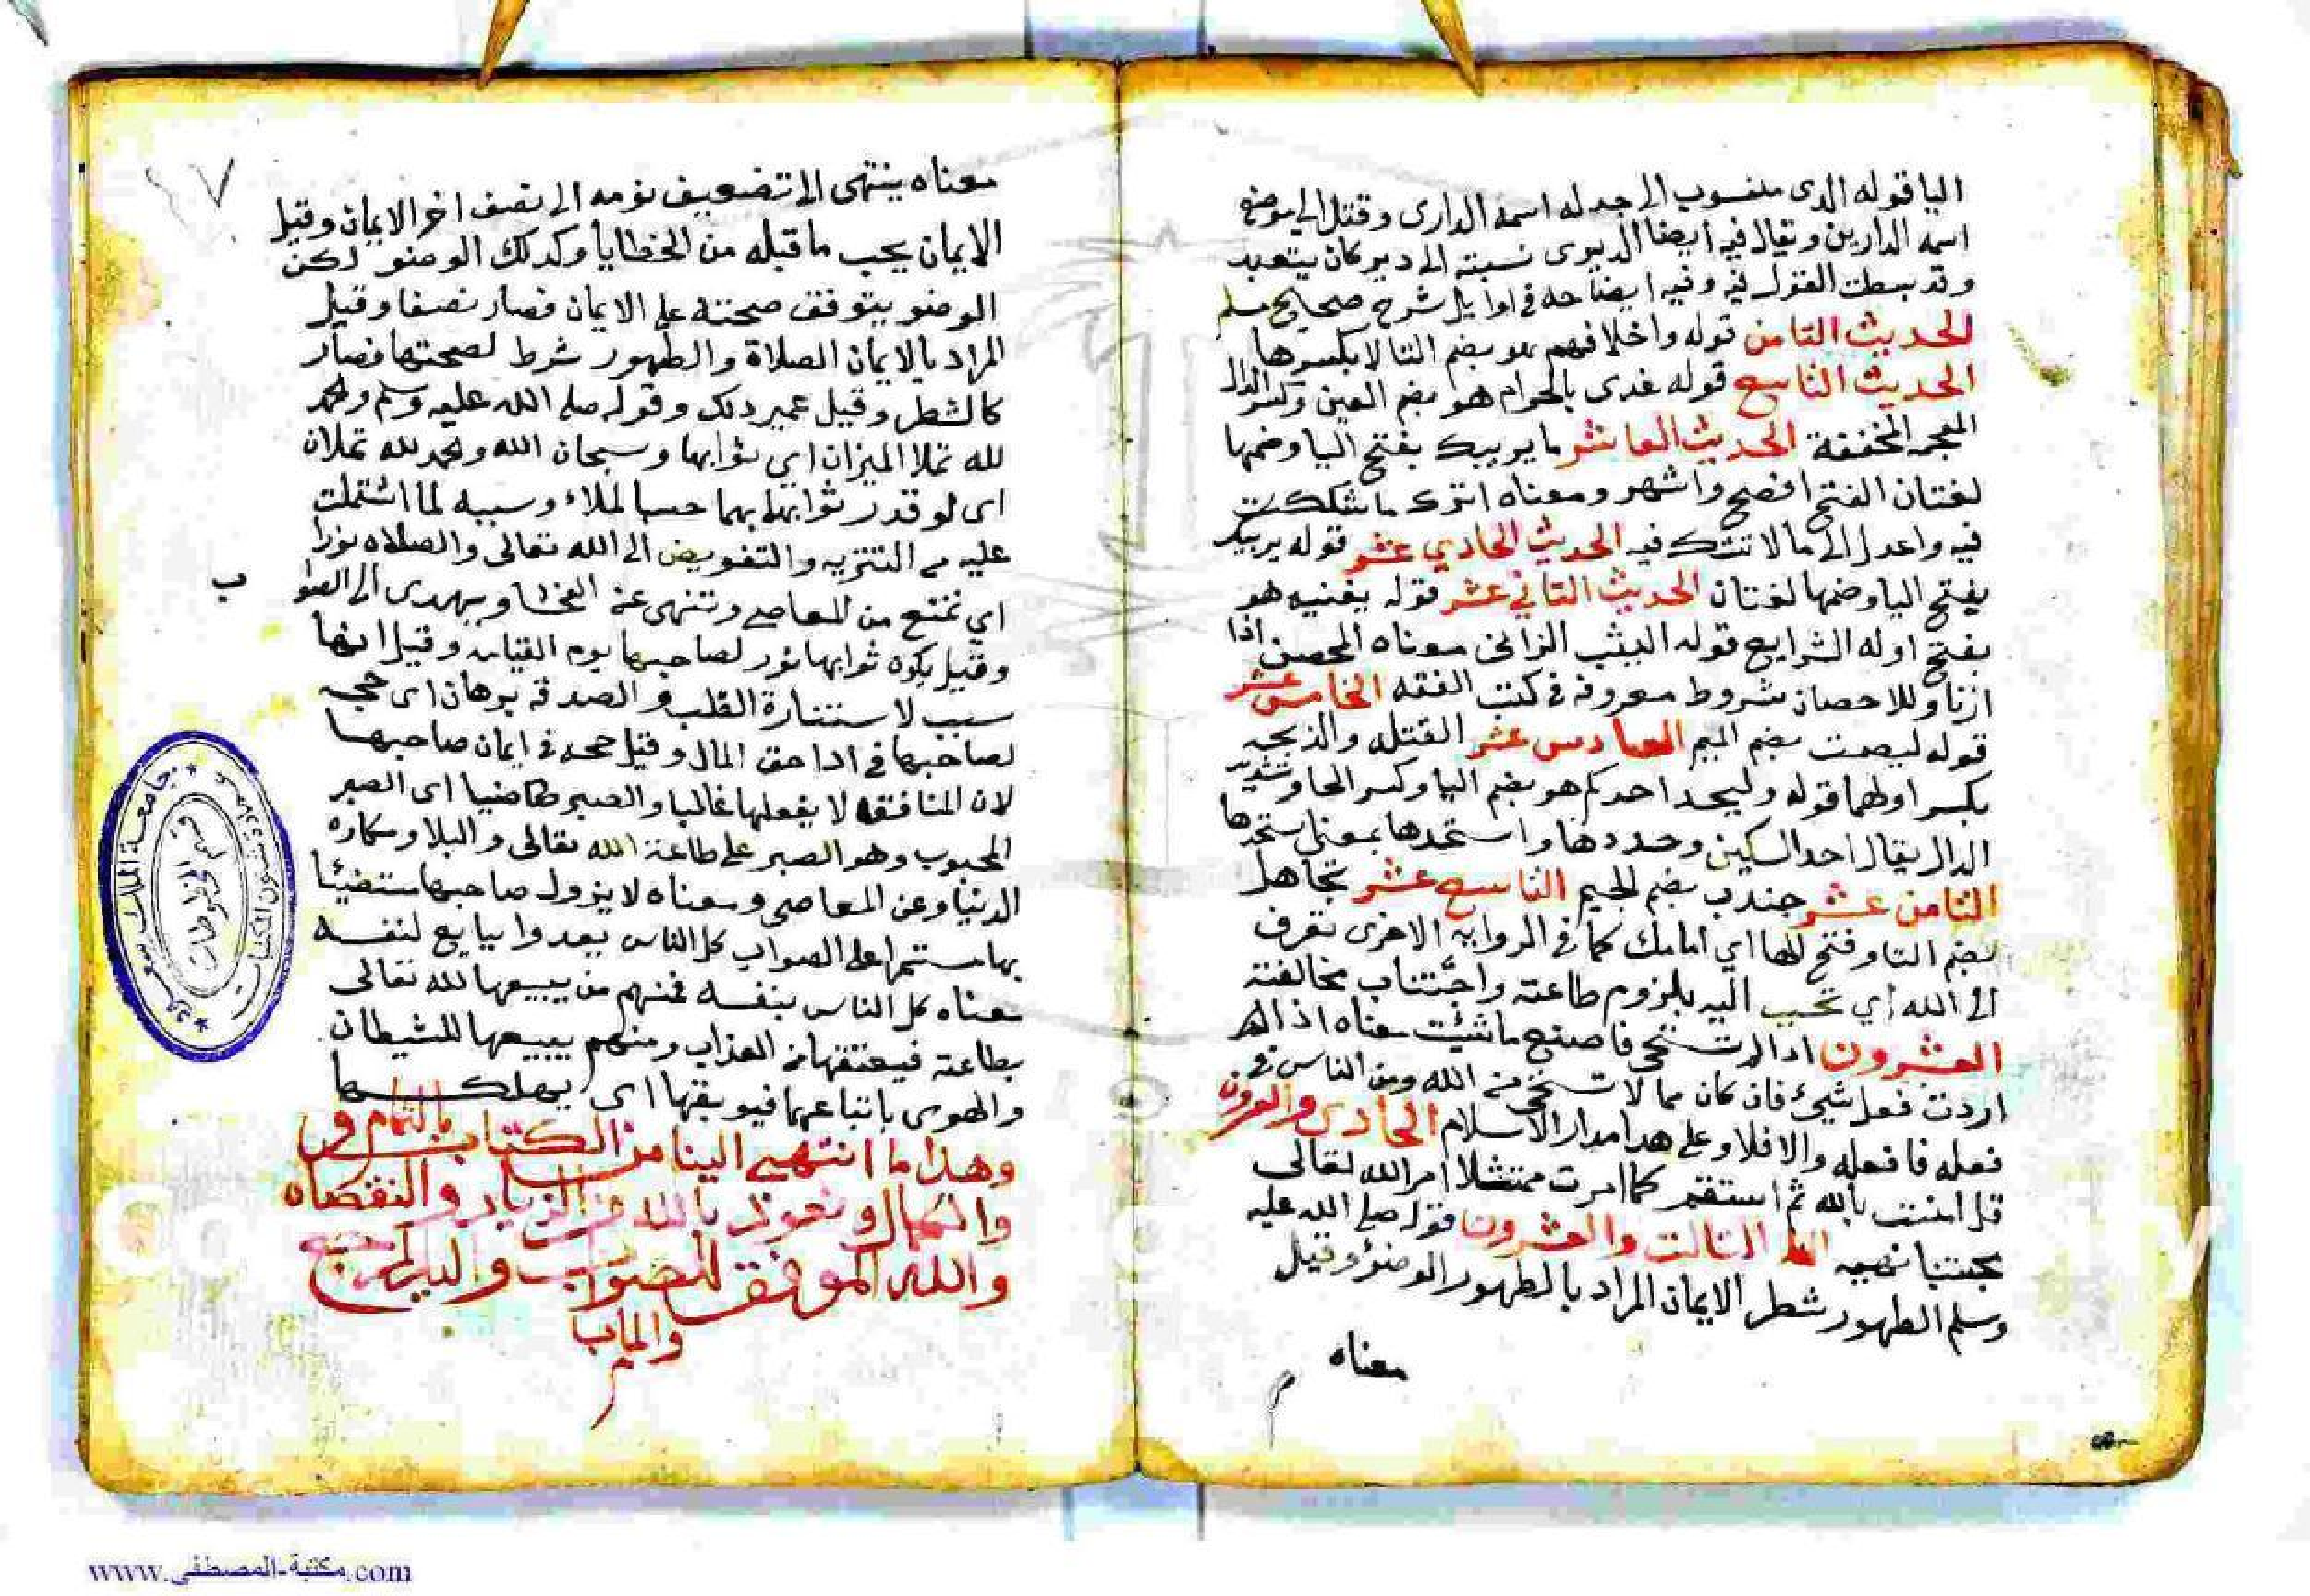 اليا قوله الدى منسوب الى جد له اسمه الدارى وقتل الى موضع
اسمه الدارين ويقال فيه ايضا الديرى نسبته الى دير كان يتعبد
وقد بسطت القول فيه وفيه ايضاحه فى اوايل شرح صحيح مسلم
الحديث الثامن قوله واختلافهم هو بضم التا لا بكسرها
الحديث التاسع قوله غدى بالحرام هو بضم الغين وكسر الدال
المعجمه المخففة الحديث العاشر ما يريبك بفتح اليا وضمها
لغتان الفتح افصح واشهر ومعناه اترك ما شككت
فيه واعدل الى ما لا تشك فيه الحديث الحادي عشر قوله يريبك
بفتح اليا وضمها لغتان الحديث الثاني عشر قوله يعنيه هو
بفتح اوله الرابع قوله الثيب الزانى معناه المحصن اذا
ازنا وللاحصان شروط معروفه فى كتب الفقه الخامس عشر
قوله ليصمت بضم الميم السادس عشر القتله والذبحه
بكسر اولهما قوله وليحد احدكم هو بضم اليا وكسر الحا وتشديد
الدال يقال احد السكين وحددها واستحدها بمعنى
الثامن عشر جندب بضم الجيم التاسع عشر تجاهك
بضم التا وفتح الها اي امامك كما فى الرواية الاخرى تعرف
الى الله اي تحبب اليه بلزوم طاعته واجتناب مخالفته
العشرون اذا لم تستحى فاصنع ما شئت معناه اذا
اردت فعل شيئ فان كان مما لا تستحى من الله ومن الناس فى
فعله فافعله والا فلا وعلى هدا مدار الاسلام الحادى والعشرون
قل امنت بالله ثم استقم كما امرت ممتثلا امر الله تعالى
مجتنبا نهيه الثالث والعشرون قوله صلى الله عليه
وسلم الطهور شطر الايمان المراد بالطهور الوضؤ وقيل
معناه
معناه ينتهى الى تضعيف نومه الى نصف اخر الايمان وقيل
الايمان يجب ما قبله من الخطايا وكدلك الوضو لكن
الوضو يتوقف صحته على الايمان فصار نصفا وقيل
المراد بالايمان الصلاة والطهور شرط لصحتها فصار
كالشطر وقيل غير دلك وقوله صلى الله عليه وسلم والحمد
لله تملا الميزان اي ثوابها وسبحان الله والحمد لله تملان
اى لو قدر ثوابهما حسما لملاء وسببه لما اشتملت
عليه من التنزيه والتفويض الى الله تعالى والصلاه نورا
اي تمنع من المعاصي وتنهى عن الفحشا ويهدى الى الصوا
ب
وقيل يكون ثوابها نور لصاحبها يوم القيامه وقيل انها
سبب لاستنارة القلب والصدقه برهان اى حجه
لصاحبها فى ادا حق المال وقيل حجه فى ايمان صاحبها
لان المنافقه لا يفعلها غالبا والصبر ضيا اى الصبر
المحبوب وهو الصبر على طاعة الله تعالى والبلا ومكاره
الدنيا وعن المعاصى ومعناه لا يزول صاحبها مستضيئا
بها مستمرا على الصواب كل الناس يغدوا بيايع لنفسه
معناه كل الناس بنفسه فمنهم من يبيعها لله تعالى
بطاعته فيعتقها من العذاب ومنهم يبيعها للشيطان
والهوى باتباعهما فيوبقها اى يهلكها
وهذا ما انتهى الينا من الكتاب بالتمام
والكمال ونعوذ بالله من الزياد والنقصان
والله الموفق للصواب واليه المرجع
والماب
جامعة الملك سعود
عمادة شؤون المكتبات
قسم المخطوطات
www.مكتبة-المصطفى.com